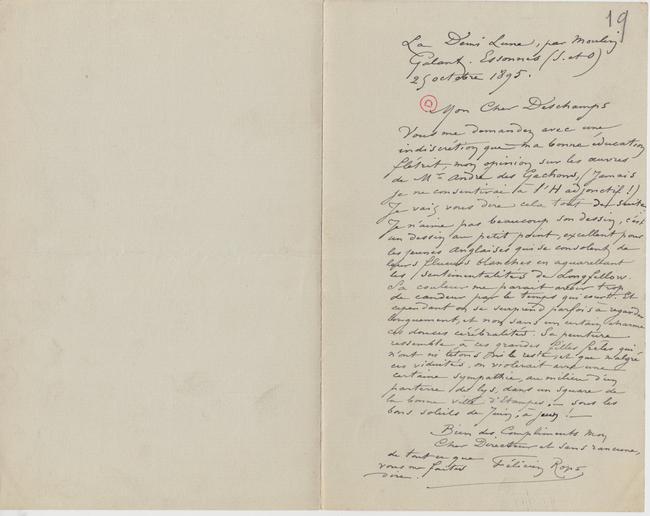 19
La Demi Lune, par Moulin
Galant. Essonnes (S. et O)
25 octobre 1895.
Mon Cher Deschamps
Vous me demandez avec une
indiscrétion que ma bonne éducation
flétrit, mon opinion sur les œuvres
de Mr André des Gachons, (Jamais
je ne consentirai à l'H adjonctif !)
Je vais vous dire cela tout de suite
Je n'aime pas beaucoup son dessin, c'est
un dessin au petit point, excellent pour
les jeunes Anglaises qui se consolent de
leurs flueurs blanches en aquarellant
les sentimentalités de Longfellow.
Sa couleur me parait avoir trop
de candeur par le temps qui court. Et
cependant on se surprend parfois à regarder
longuement, et non sans un certain charme
ces douces cérébralités. Sa peinture
ressemble à ces grandes filles frêles qui
n'ont ni tétons ni le reste, et que malgré
ces viduités, on violerait avec une
certaine sympathie, au milieu d'un
parterre de lys, dans un square de
la bonne ville d'Etampes, — sous les
bons soleils de Juin, à jeun !—
Bien des Compliments Mon
Cher Directeur et sans rancune,
de tout ce que
vous me faites
dire !
Félicien Rops